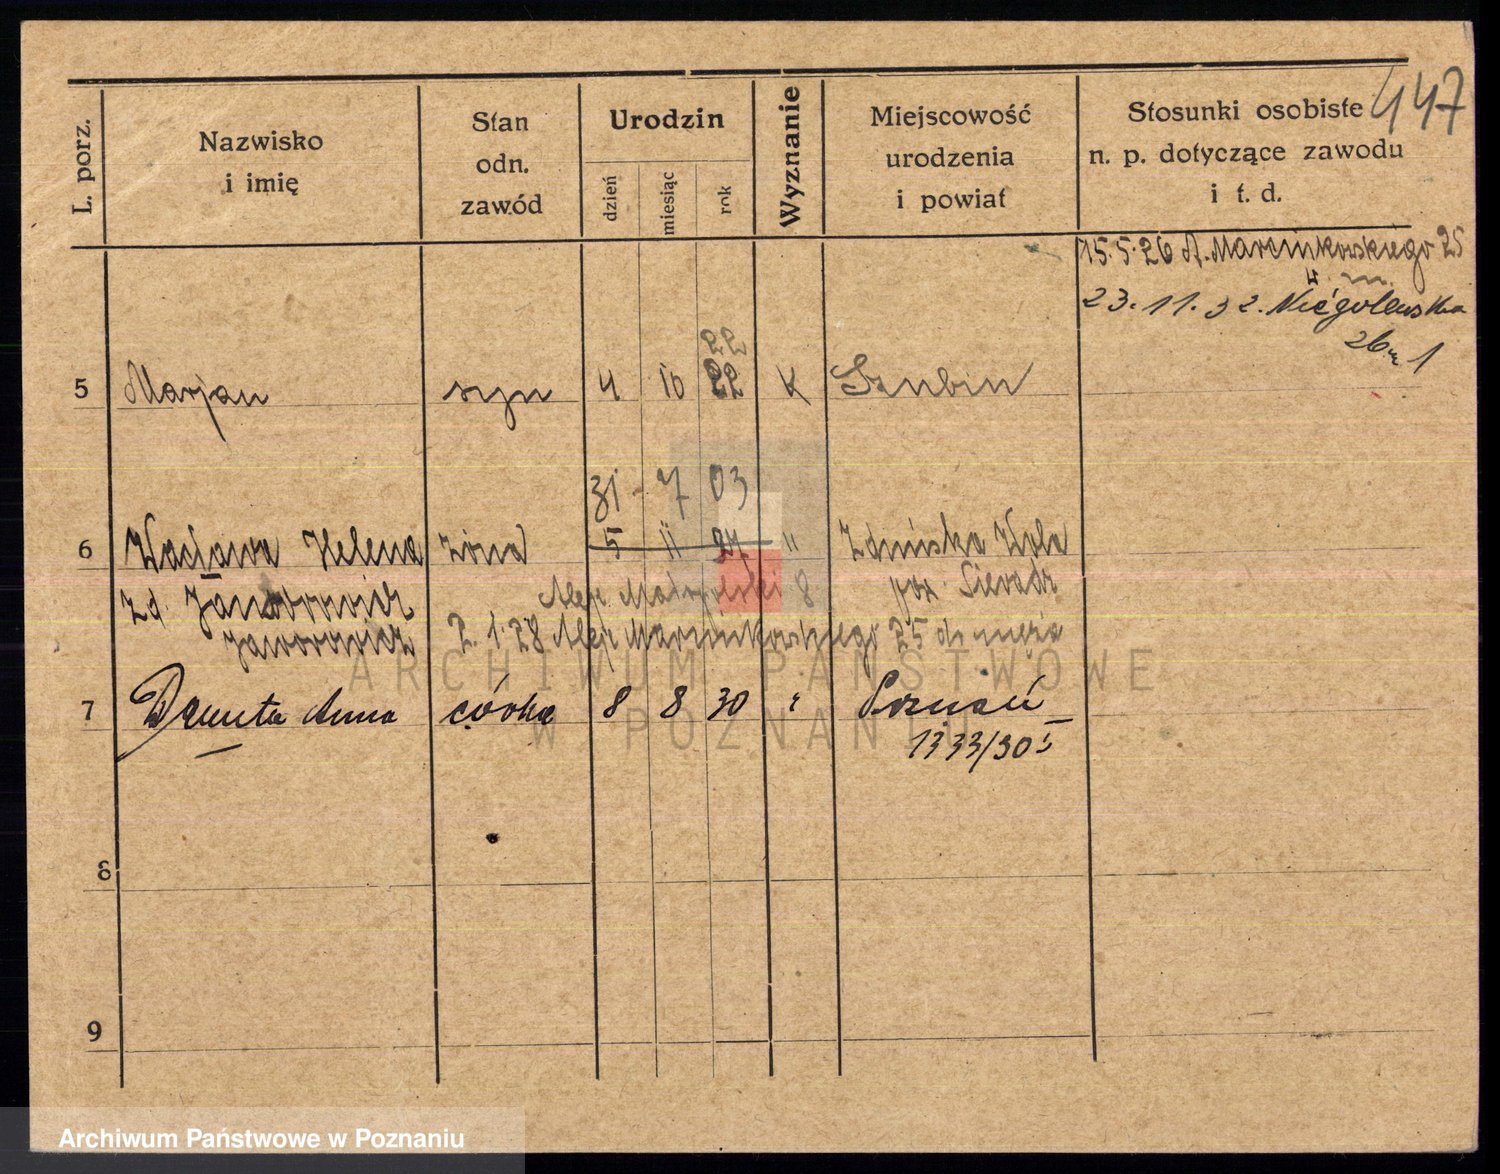 447
L. porz.
Nazwisko
i imię
Stan
odn.
zawód
Urodzin
dzień
miesiąc
rok
Wyznanie
Miejscowość
urodzenia
i powiat
Stosunki osobiste
n. p. dotyczące zawodu
i t. d.
15.5.26 A. Marcinkowskiego 25
23.11.32. Niegolewska
26 m 1
22
5 Marjan syn 4 10 22 K Szubin
31 7 03
6 Wacława Helena żona 5 11 27 " Zduńska Wola
zd. Jaworowicz Aleje Małopolski 8 pow. Sieradz
Jaworowicz 2.1.28 Aleje Marcinkowskiego 25 do męża
7 Danuta Anna córka 8 8 30 " Poznań
1333/30
8
9
ARCHIWUM PAŃSTWOWE
W POZNANIU
Archiwum Państwowe w Poznaniu